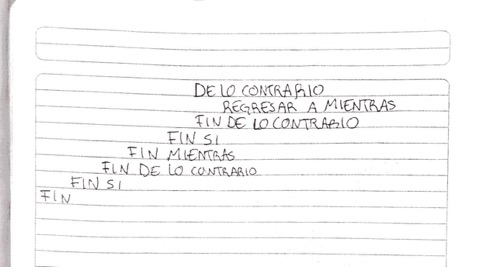 DE LO CONTRARIO
REGRESAR A MIENTRAS
FIN DE LO CONTRARIO
FIN SI
FIN MIENTRAS
FIN DE LO CONTRARIO
FIN SI
FIN